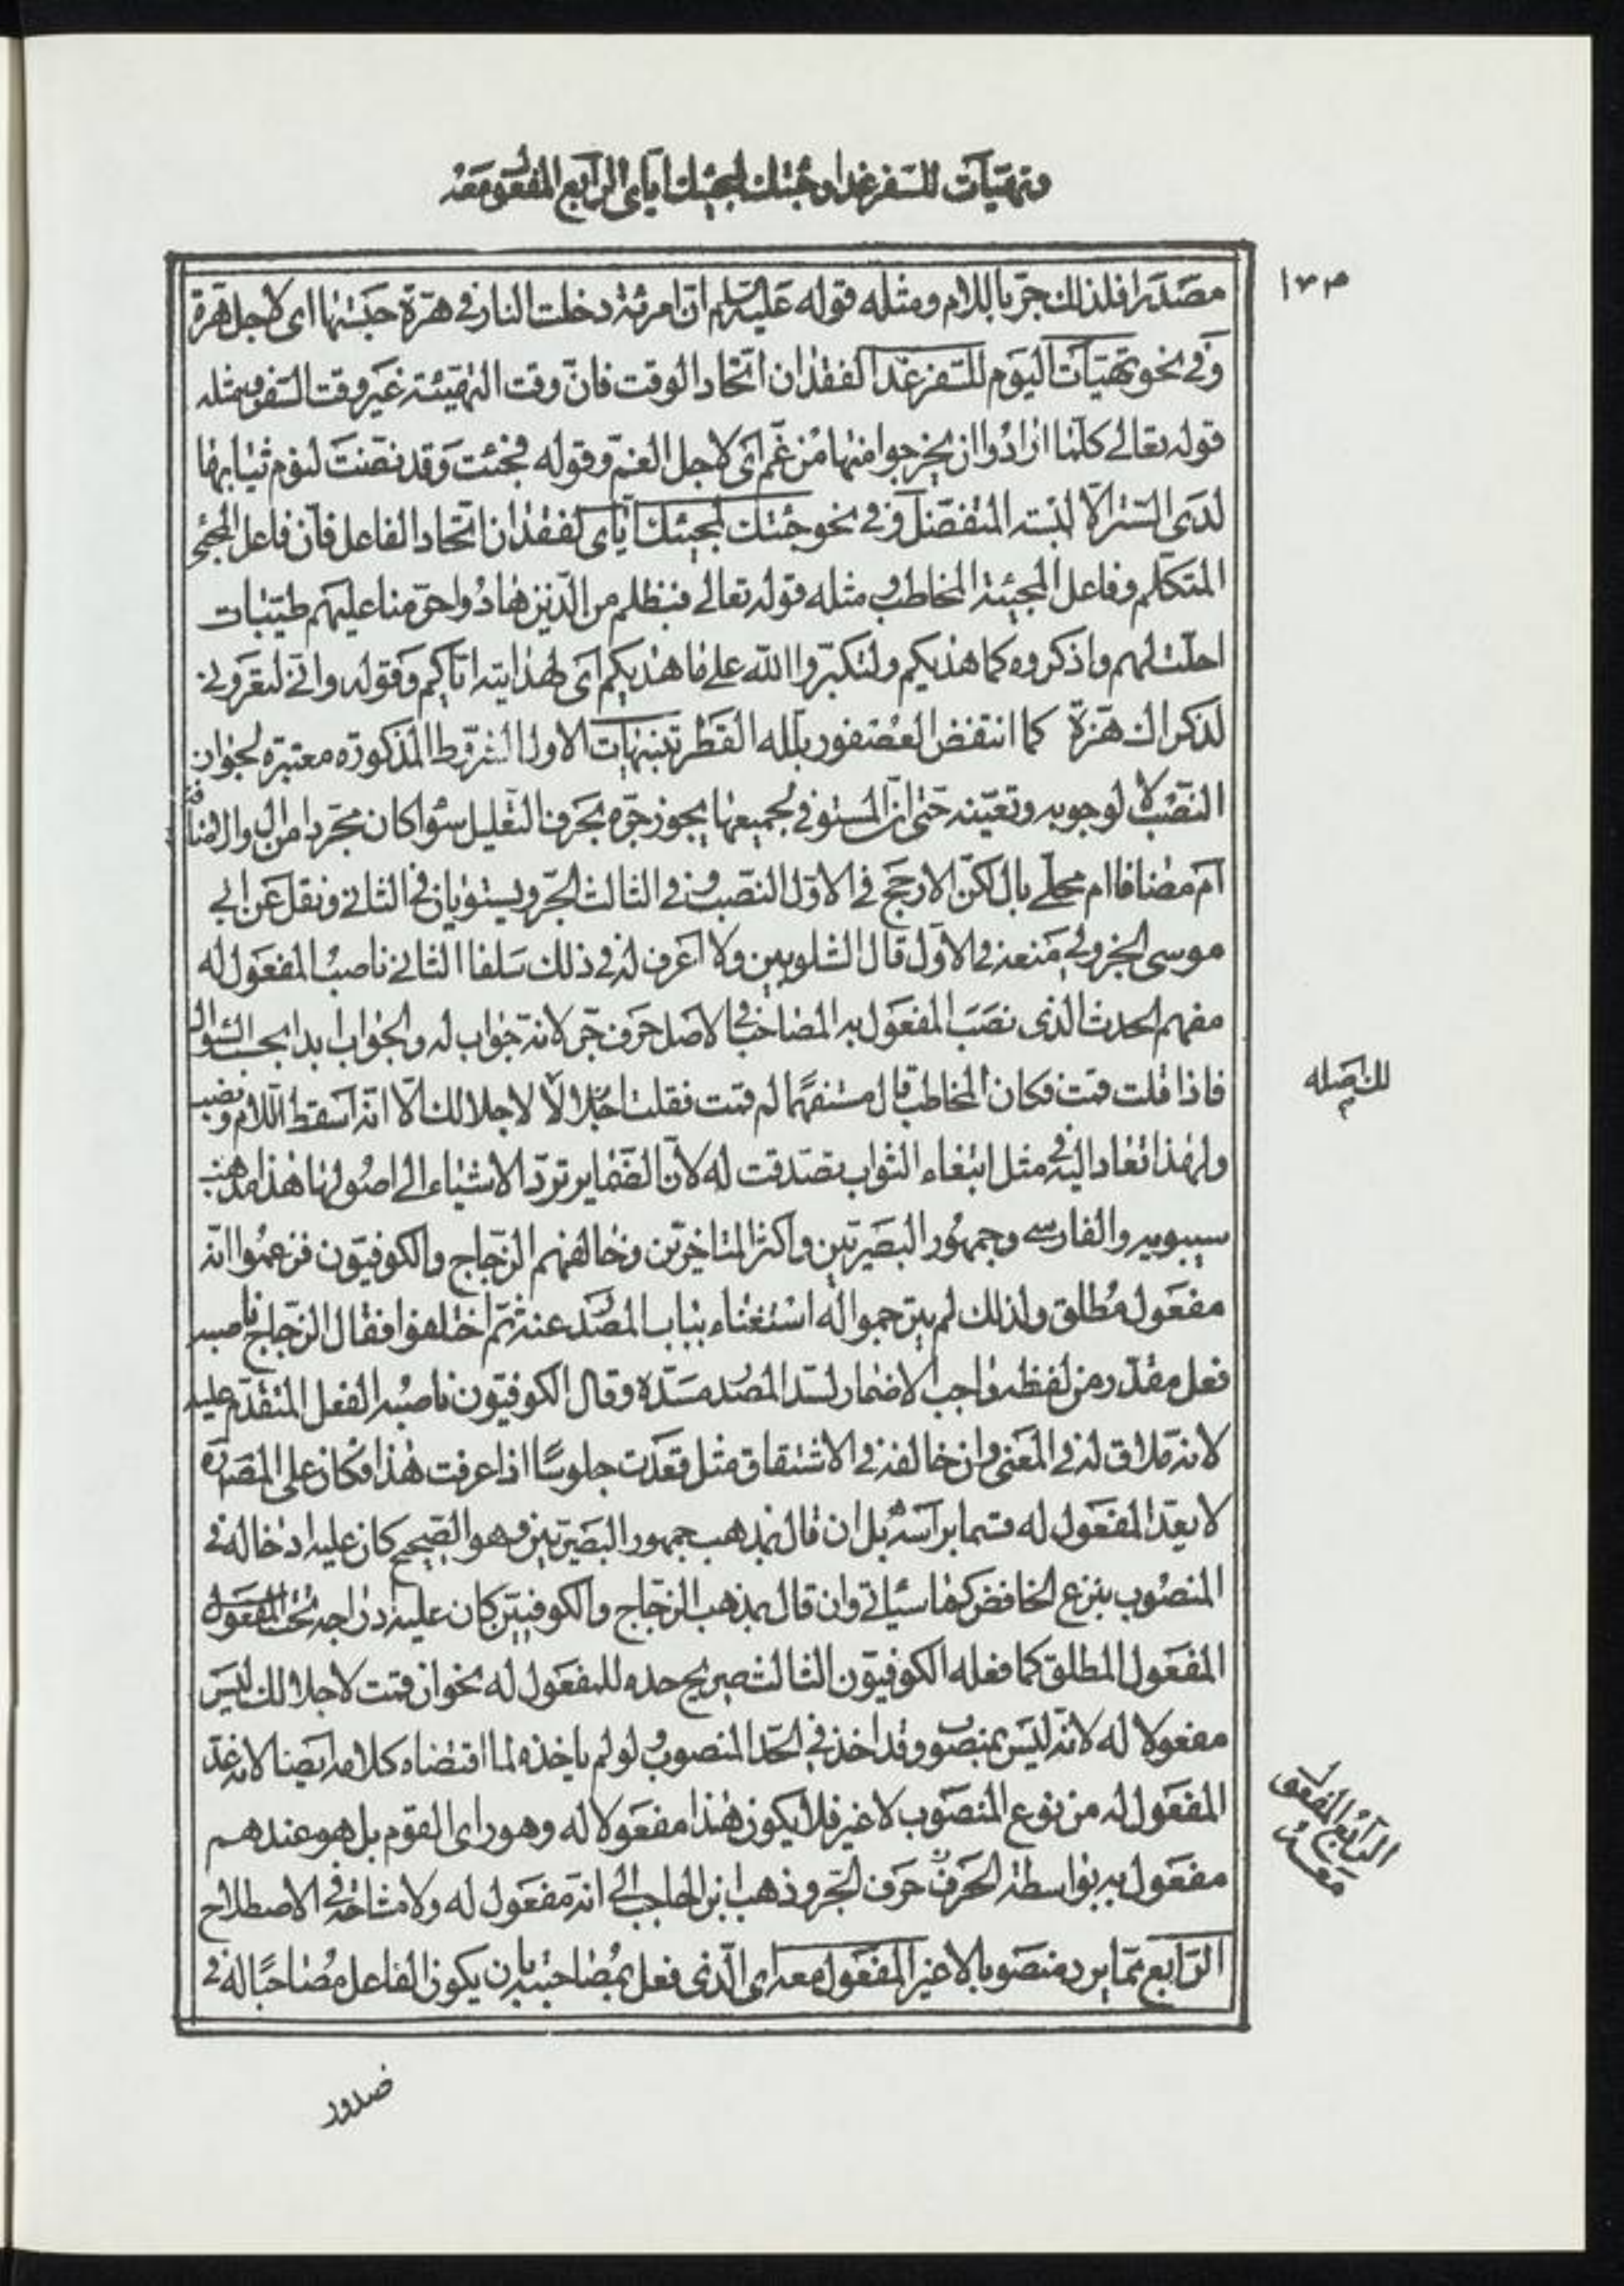 وتهيّات للسّفر غدا وجئتك لمجيئك اياى الرابع المفعول معه
١٣٣
مصدرا فلذلك جرّ باللام ومثله قوله عليه السلام ان امرئة دخلت النار فى هرّة حبستها اى لاجل هرة
وفى نحو تهيّات اليوم للسّفر غدا لفقدان اتّحاد الوقت فانّ وقت التهيئة غير وقت السّفر ومثله
قوله تعالى كلّما ارادوا ان يخرجوا منها من غمّ اى لاجل الغمّ وقوله فجئت وقد نضّت لنوم ثيابها
لدى السّتر الّا لبسة المتفضّل وفى نحو جئتك لمجيئك ايّاى لفقدان اتّحاد الفاعل فانّ فاعل المجئ
المتكلّم وفاعل المجيئة المخاطب ومثله قوله تعالى فبظلم من الّذين هادوا حرّمنا عليهم طيّبات
احلّت لهم واذكروه كما هذيكم ولتكبّروا الله على ما هذيكم اى لهذايته ايّاكم وقوله وانّى لتعرونى
لذكراك هزّة كما انتقض العصفور بلله القطر تنبيهات الاول الشروط المذكورة معتبرة لجواز
النّصب لا لوجوبه وتعيّنه حتى انّ المستوفى لجميعها يجوز جرّه بحرف التعليل سواء كان مجردا من ال والاضافة
ام مضافا ام محلّى بال لكنّ الارجح فى الاوّل النصب وفى الثالث الجرّ ويستويان فى الثانى ونقل عن ابى
موسى الجزولى منعه فى الاوّل قال الشلوبين ولا اعرف له فى ذلك سلفا الثانى ناصب المفعول له
مفهم الحدث الذى نصب المفعول به المصاحب فى الاصل حرف جرّ لانه جواب له والجواب ابدا بحسب السّؤال
فاذا قلت قمت فكان المخاطب قال مستفهما لم قمت فقلت اجلالا لاجلالك الّا انّه اسقط اللام ونصب
ولهذا تعاد اليه فى مثل ابتغاء الثواب تصدقت له لانّ الضّماير تردّ الاشياء الى اصولها هذا مذهب
سيبويه والفارسى وجمهور البصريّين واكثر المتاخرين وخالفهم الزجّاج والكوفيّون فزعموا انّه
مفعول مطلق ولذلك لم يترجموا له استغناء بباب المصدر عنه ثمّ اختلفوا فقال الزجّاج ناصبه
فعل مقدّر من لفظه واجب الاضمار لسدّ المصدر مسدّه وقال الكوفيّون ناصبه الفعل المتقدّم عليه
لانه ملاق له فى المعنى وان خالفه فى الاشتقاق مثل قعدت جلوسًا اذا عرفت هذا فكان على المصره
لا يعدّ المفعول له قسما براسه بل ان قال بمذهب جمهور البصريّين وهو الصّحيح كان عليه ادخاله فى
المنصوب بنزع الخافض كما سياتى وان قال بمذهب الزجّاج والكوفيّين كان عليه ادراجه تحت المفعول
المفعول المطلق كما فعله الكوفيّون الثالث صريح حده للمفعول له نحو ان قمت لاجلالك ليس
مفعولا له لانّه ليس بمنصوب وقد اخذ فى الحدّ المنصوب ولو لم ياخذه لما اقتضاه كلامه ايضا لانه عدّ
المفعول له من نوع المنصوب لا غير فلا يكون هذا مفعولا له وهو راى القوم بل هو عندهم
مفعول به بواسطة الحرف حرف الجرّ وذهب ابن الحاجب الى انّه مفعول له ولا مشاحّة فى الاصطلاح
الرّابع ممّا يرد منصوبا لا غير المفعول معه اى الّذى فعل بمصاحبته بان يكون الفاعل مصاحبًا له فى
الرابع المفعول
معه
صدور